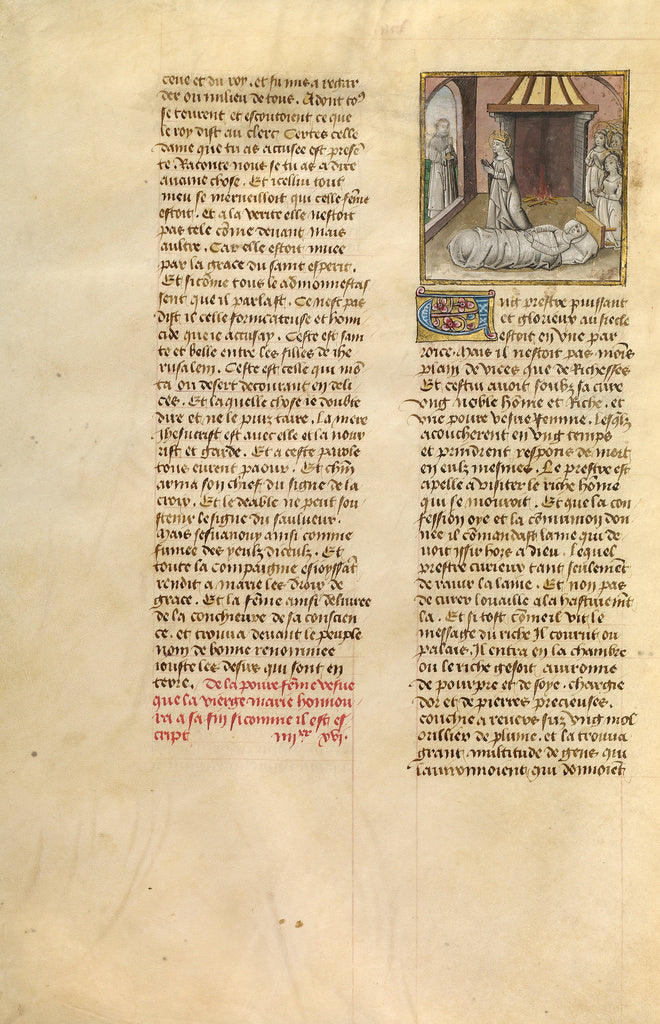 ceur et du roy. et fu mis a regar
der ou milieu de tous. Adont to9
se teurent et escoutoient ce que
le roy dist au clerc Certes celle
dame que tu as accusee est presen
te. Raconte nous se tu as a dire
aucune chose. Et icellui tout
meu se merveilloit qui celle feme
estoit. Et a la verite elle nestoit
pas tele come devant mais
aultre. Car elle estoit muee
par la grace du saint esperit.
Et si come tous le admonnestas
sent que il parlast. Ce nest pas
dist il celle fornicateuse et homi
cide que ie accusay. Ceste est sain
te et belle entre les filles de ihe
rusalem. Ceste est celle qui mo
ta ou desert decourant en deli
ces. Et laquelle chose ie doubte
dire et ne le puiz taire. La mere
Jhesucrist est avec elle et la nour
rist et garde. Et a ceste parole
tous eurent paour. Et chun
arma son chief du signe de la
croix. Et le deable ne peut sou
stenir le signe du saulveur.
Mais sesvanouy ainsi comme
fumee des yeulz diceulz. Et
toute la compaignie esioyssat
rendit a marie les droiz de
grace. Et la feme ainsi delivree
de la conchieure de sa conscien
ce. et trouva devant le peuple
nom de bonne renommee
iouste les desirs qui sont en
terre. De la poure feme vesve
que la vierge marie honnou
ra a sa fin si comme il est es
cript iiii xx xvi.
Ung prestre puissant
et glorieux au siecle
estoit en une par
roice. Mais il nestoit pas moins
plain de vices que de Richesses
Et cestui avoit soubz sa cure
ung noble home et Riche. et
une poure vesve femme. Lesqlz
acoucherent en ung temps
et prindrent respons de mort
en eulz mesmes. Le prestre est
apelle a visiter le riche home
qui se mouroit. Et que la con
fession oye et la comunion don
nee il comandast lame qui de
voit issir hors a dieu. Lequel
prestre curieux tant seulement
de ravir la laine. Et non pas
de curer louaille ala hastivemt
la. Et si tost come il vit le
message du riche Il courut ou
palais. Il entra en la chambre
ou le riche gesoit avironne
de pourpre et de soye. chargie
dor et de pierres precieuses.
couchie a revers sur ung mol
orillier de plume. et la trouva
grant multitude de gens qui
lavironnoient. qui donnoient